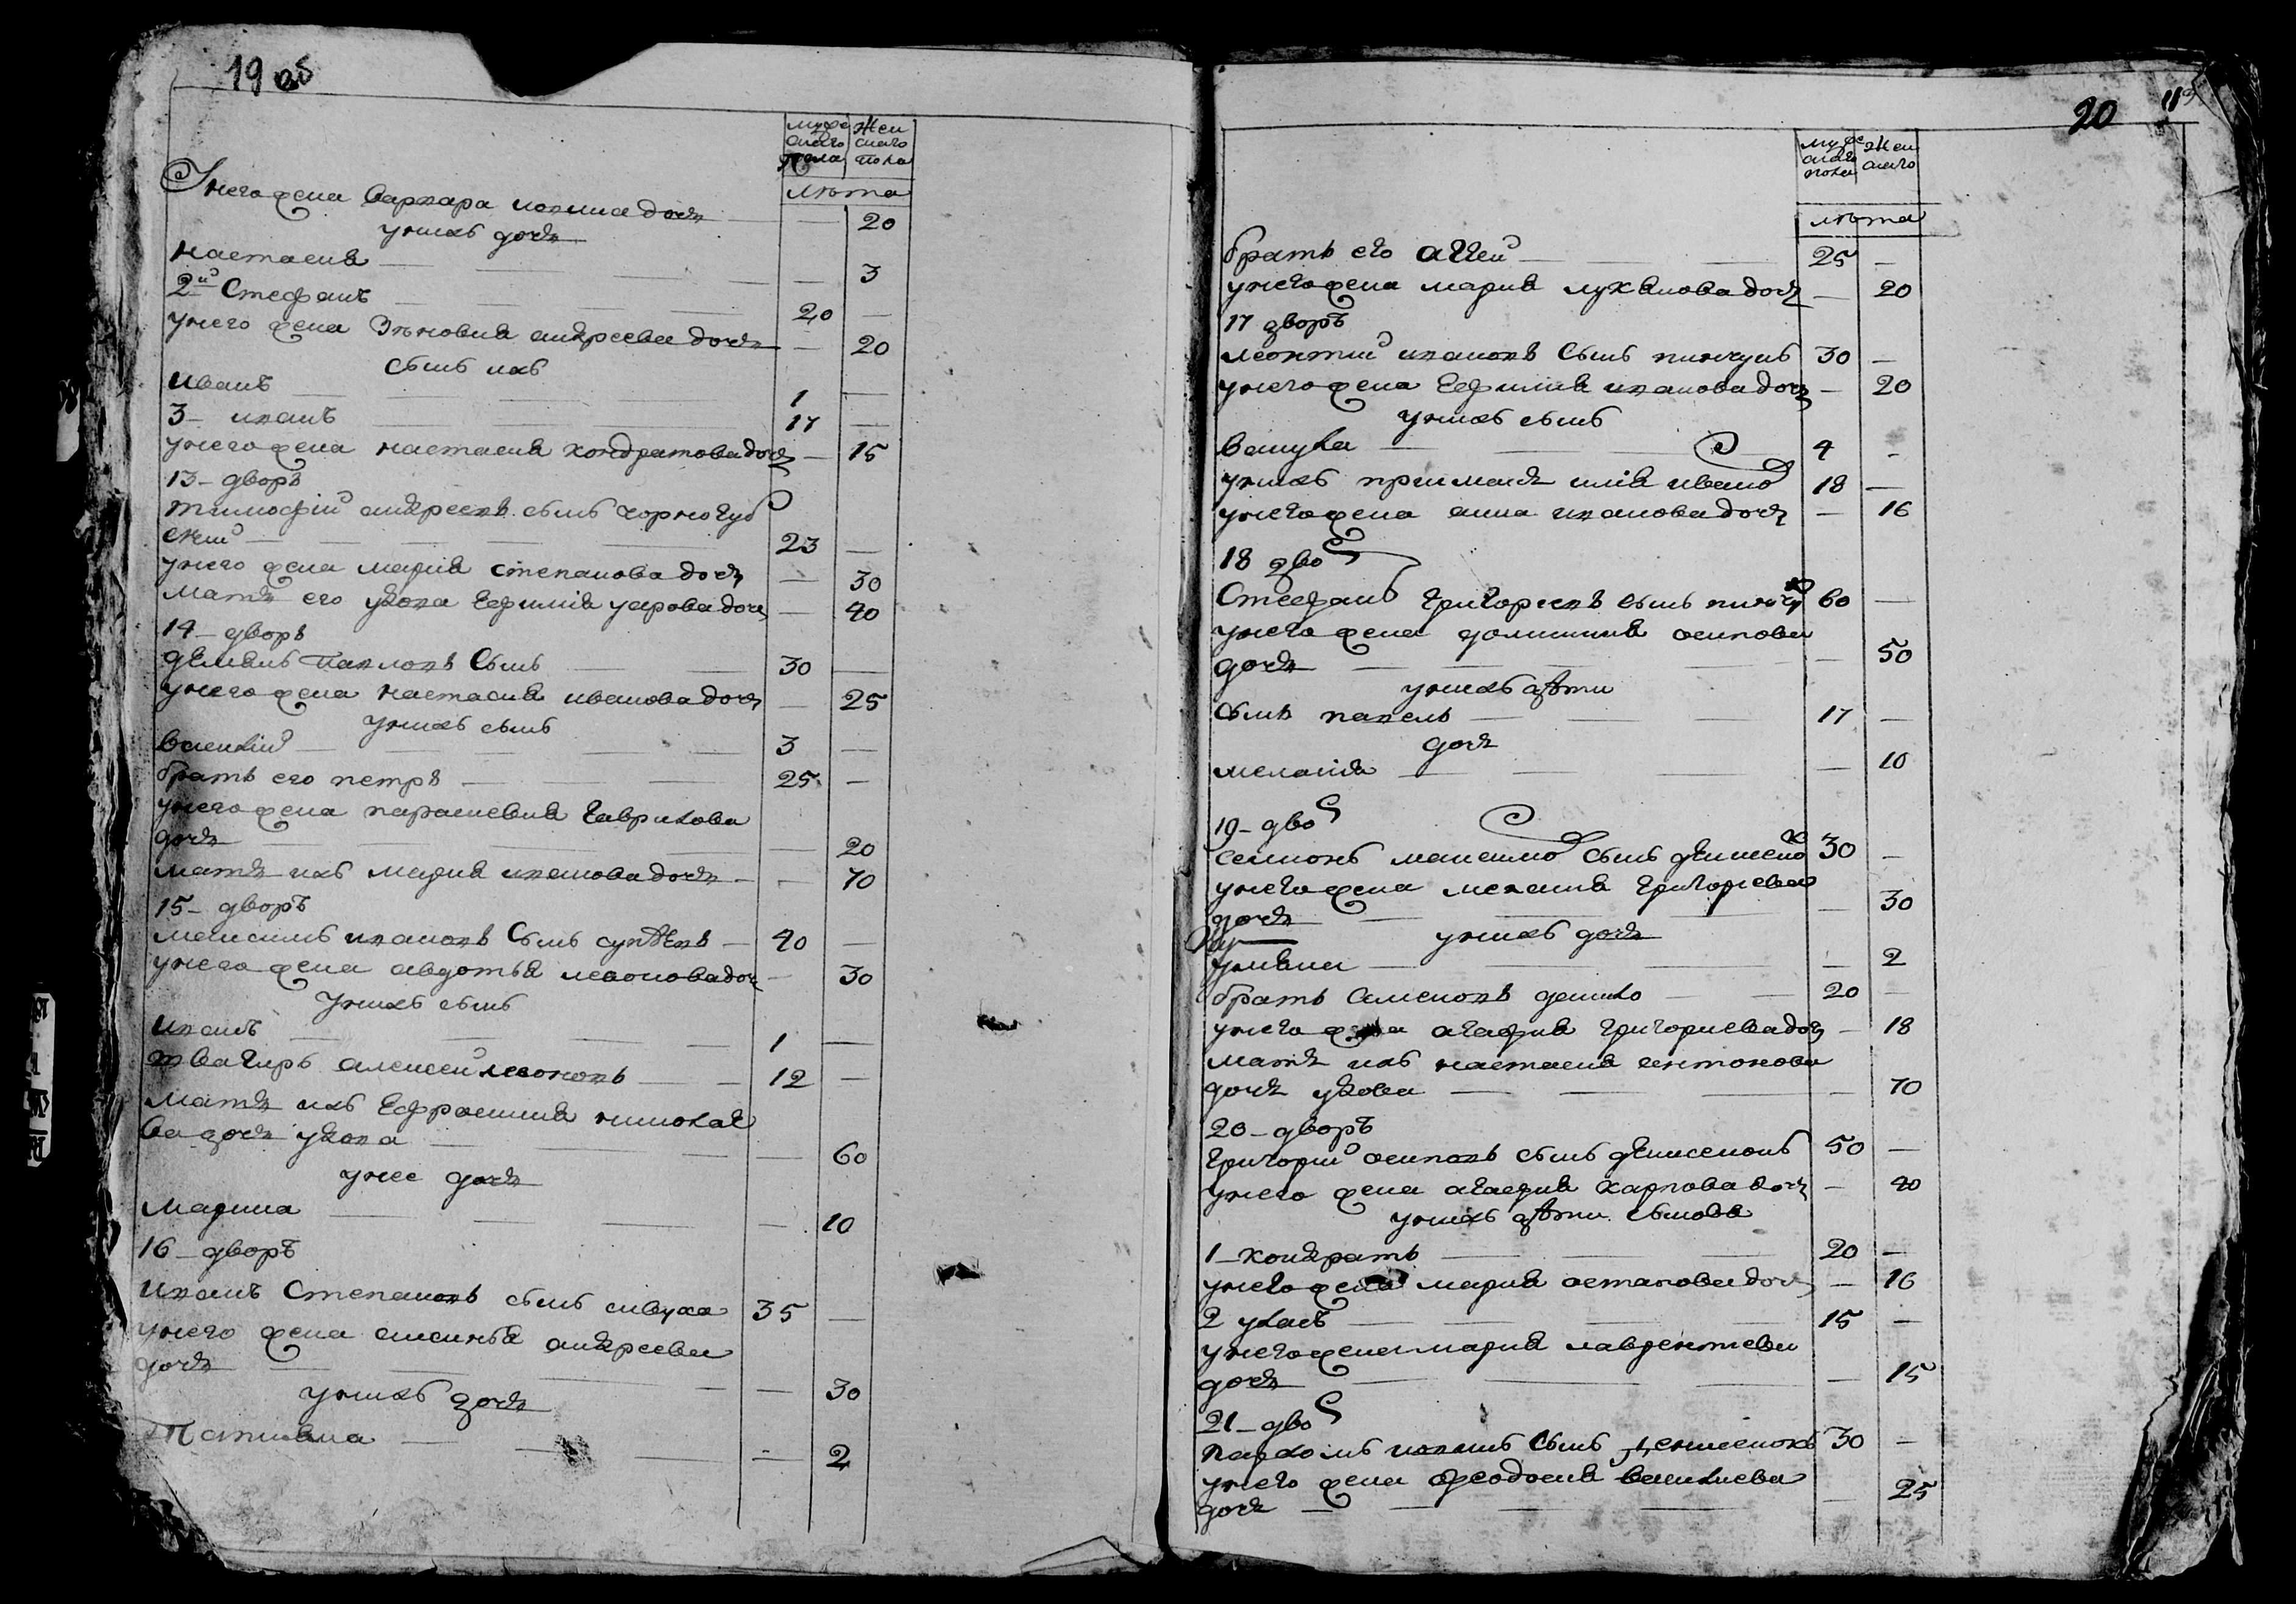 19 об
мужескаго пола
женскаго пола
лѣта
У него жена варвара иванова дочь — 20
у нихъ дочь
настасия — 3
2й Стефанъ — 20 —
у него жена Зѣновия андреева дочь — 20
сынъ ихъ
иванъ — 1 —
3 иванъ — 17 —
у него жена настасия кондратова дочь — 15
13 дворъ
тимофій андреевъ сынъ чорногуб
скии — 23 —
у него жена мария степанова дочь — 30
мать его удова Ефимия уарова дочь — 40
14 дворъ
демянъ павловъ сынъ — 30 —
у него жена настасия иванова дочь — 25
у нихъ сынъ
василій — 3 —
братъ его петръ — 25 —
у него жена парасневия гаврилова
дочь — 20
мать ихъ мария иванова дочь — 70
15 дворъ
максимъ ивановъ сынъ — 40 —
у него жена авдотья леонова дочь — 30
у нихъ сынъ
иванъ — 1 —
алексей леоновъ — 12 —
мать ихъ Ефросиния николае
ва дочь удова — 60
у нее дочь
марина — 10
16 дворъ
иванъ Степановъ сынъ сивуха 35 —
у него жена аксинья андреева
дочь — 30
у нихъ дочь
Татияна — 2
20
мужескаго пола
женскаго
лѣта
братъ его аггей — 25 —
у него жена мария лукянова дочь — 20
17 дворъ
леонтий ивановъ сынъ пинчукъ 30 —
у него жена Ефимия иванова дочь — 20
у нихъ сынъ
вакула — 4 —
у нихъ приимакъ илія ивано 18 —
у него жена анна иванова дочь — 16
18 дво
Стефанъ григориевъ сынъ пинчу 60 —
у него жена домникия осипова
дочь — 50
у нихъ дѣти
сынъ павелъ — 17 —
дочь
меланія — 10
19 дво
семионъ максимо сынъ денисено 30 —
у него жена мелания григориева
дочь — 30
у нихъ дочь
улияна — 2
братъ семеновъ данило — 20 —
у него жена агафия григориева дочь — 18
мать ихъ настасия антонова
дочь удова — 70
20 дворъ
григорий осиповъ сынъ денисенокъ 50 —
у него жена агафия карпова дочь — 40
у нихъ дѣти сынове
1 кондратъ — 20 —
у него жена мария остапова дочь — 16
2 уласъ — 15 —
у него жена мария лаврентиева
дочь — 15
21 дво
пархомъ ивановъ сынъ денисенокъ 30 —
у него жена феодосия василиева
дочь — 25